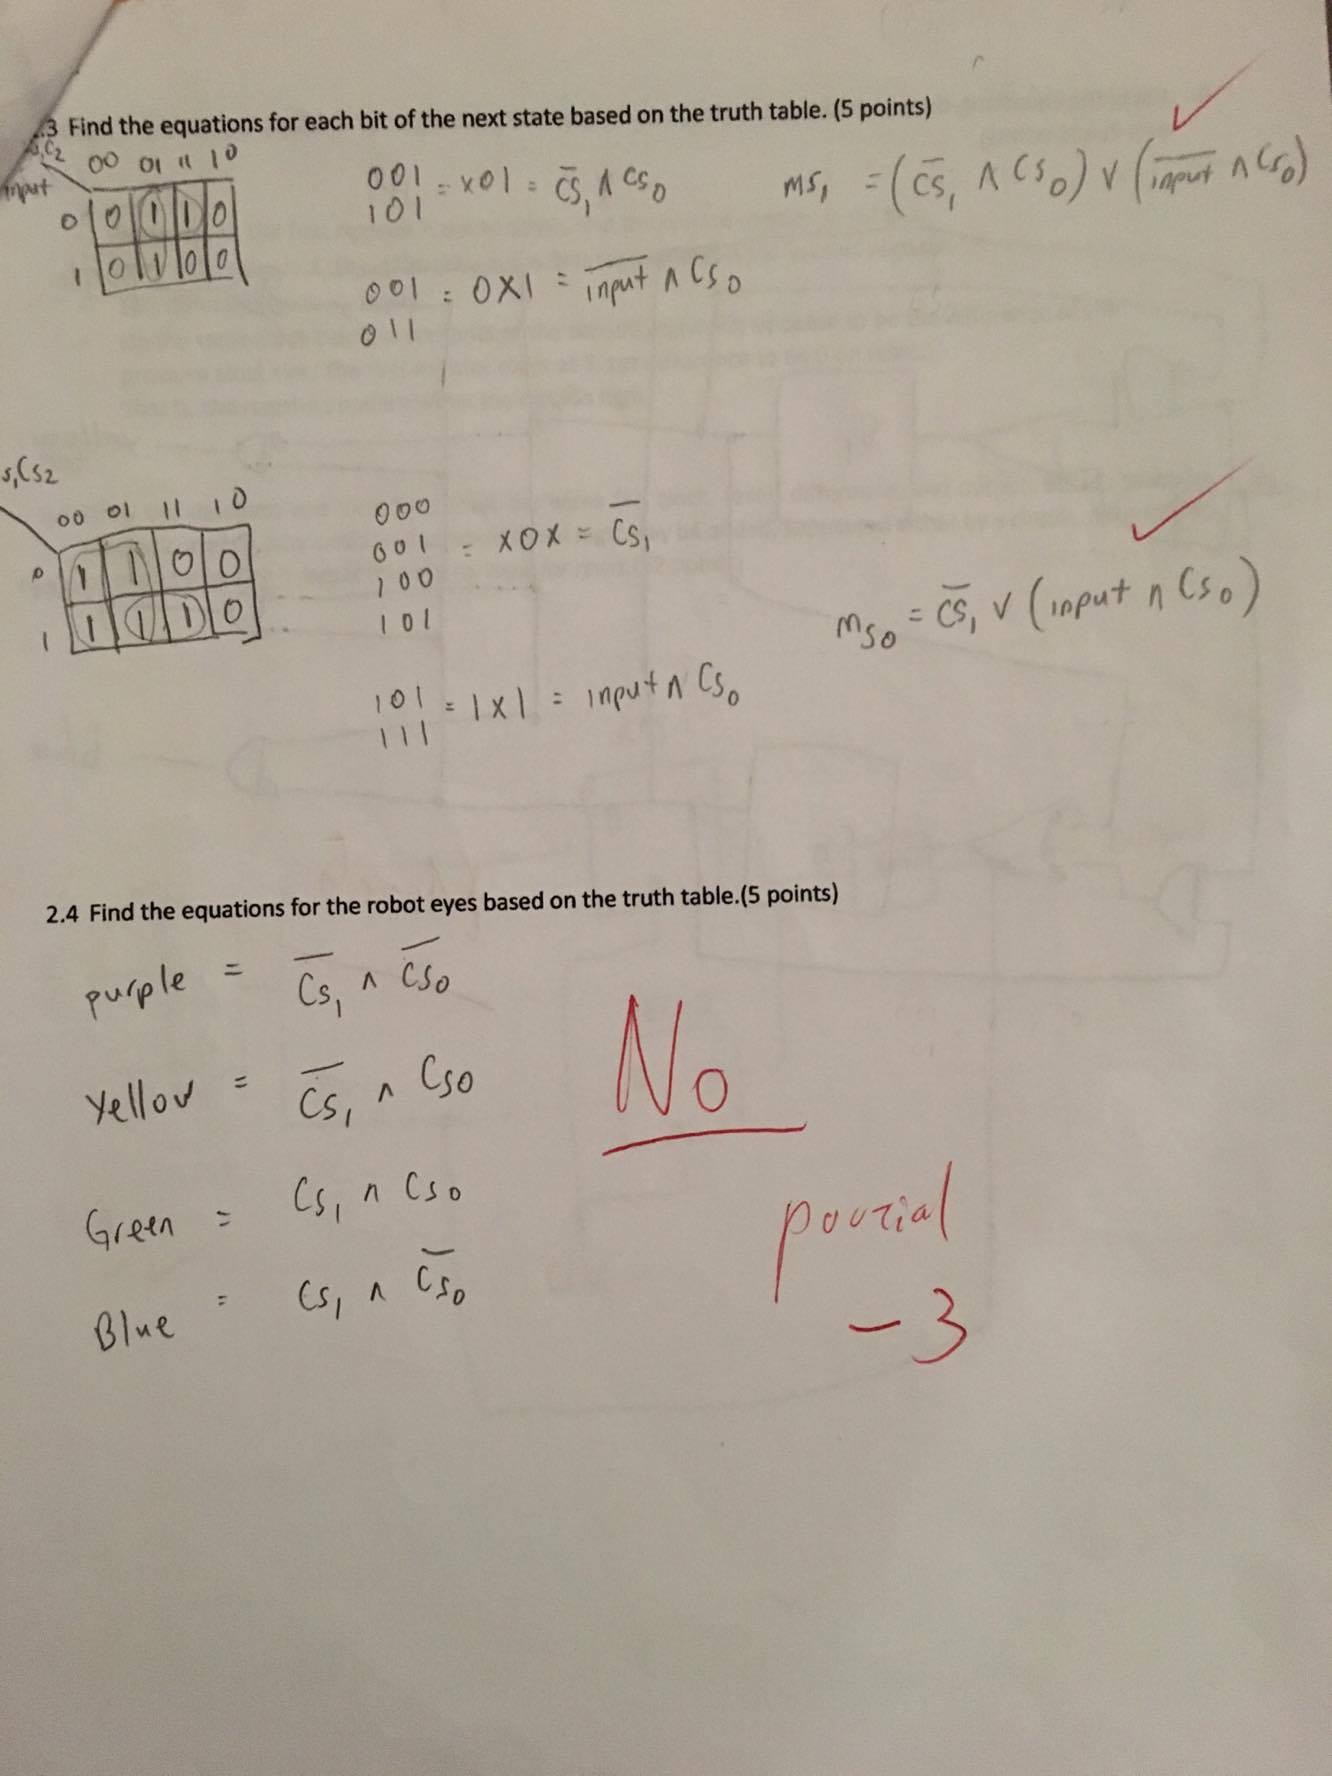 .3 Find the equations for each bit of the next state based on the truth table. (5 points)
00 01 11 10
input
0 0 1 1 0
1 0 1 0 0
001
101 = x01 = C̅S̅₁ ∧ CS₀
001
011 = 0X1 = \overline{input} ∧ CS₀
mS₁ = (C̅S̅₁ ∧ CS₀) ∨ (\overline{input} ∧ CS₀)
S₁CS2
00 01 11 10
0 1 1 0 0
1 1 1 1 0
000
001 = x0x = C̅S̅₁
100
101
101
111 = 1x1 = input ∧ CS₀
mS₀ = C̅S̅₁ ∨ (input ∧ CS₀)
2.4 Find the equations for the robot eyes based on the truth table.(5 points)
purple = C̅S̅₁ ∧ C̅S̅₀
Yellow = C̅S̅₁ ∧ CS₀
Green = CS₁ ∧ CS₀
Blue = CS₁ ∧ C̅S̅₀
No
pourial
-3